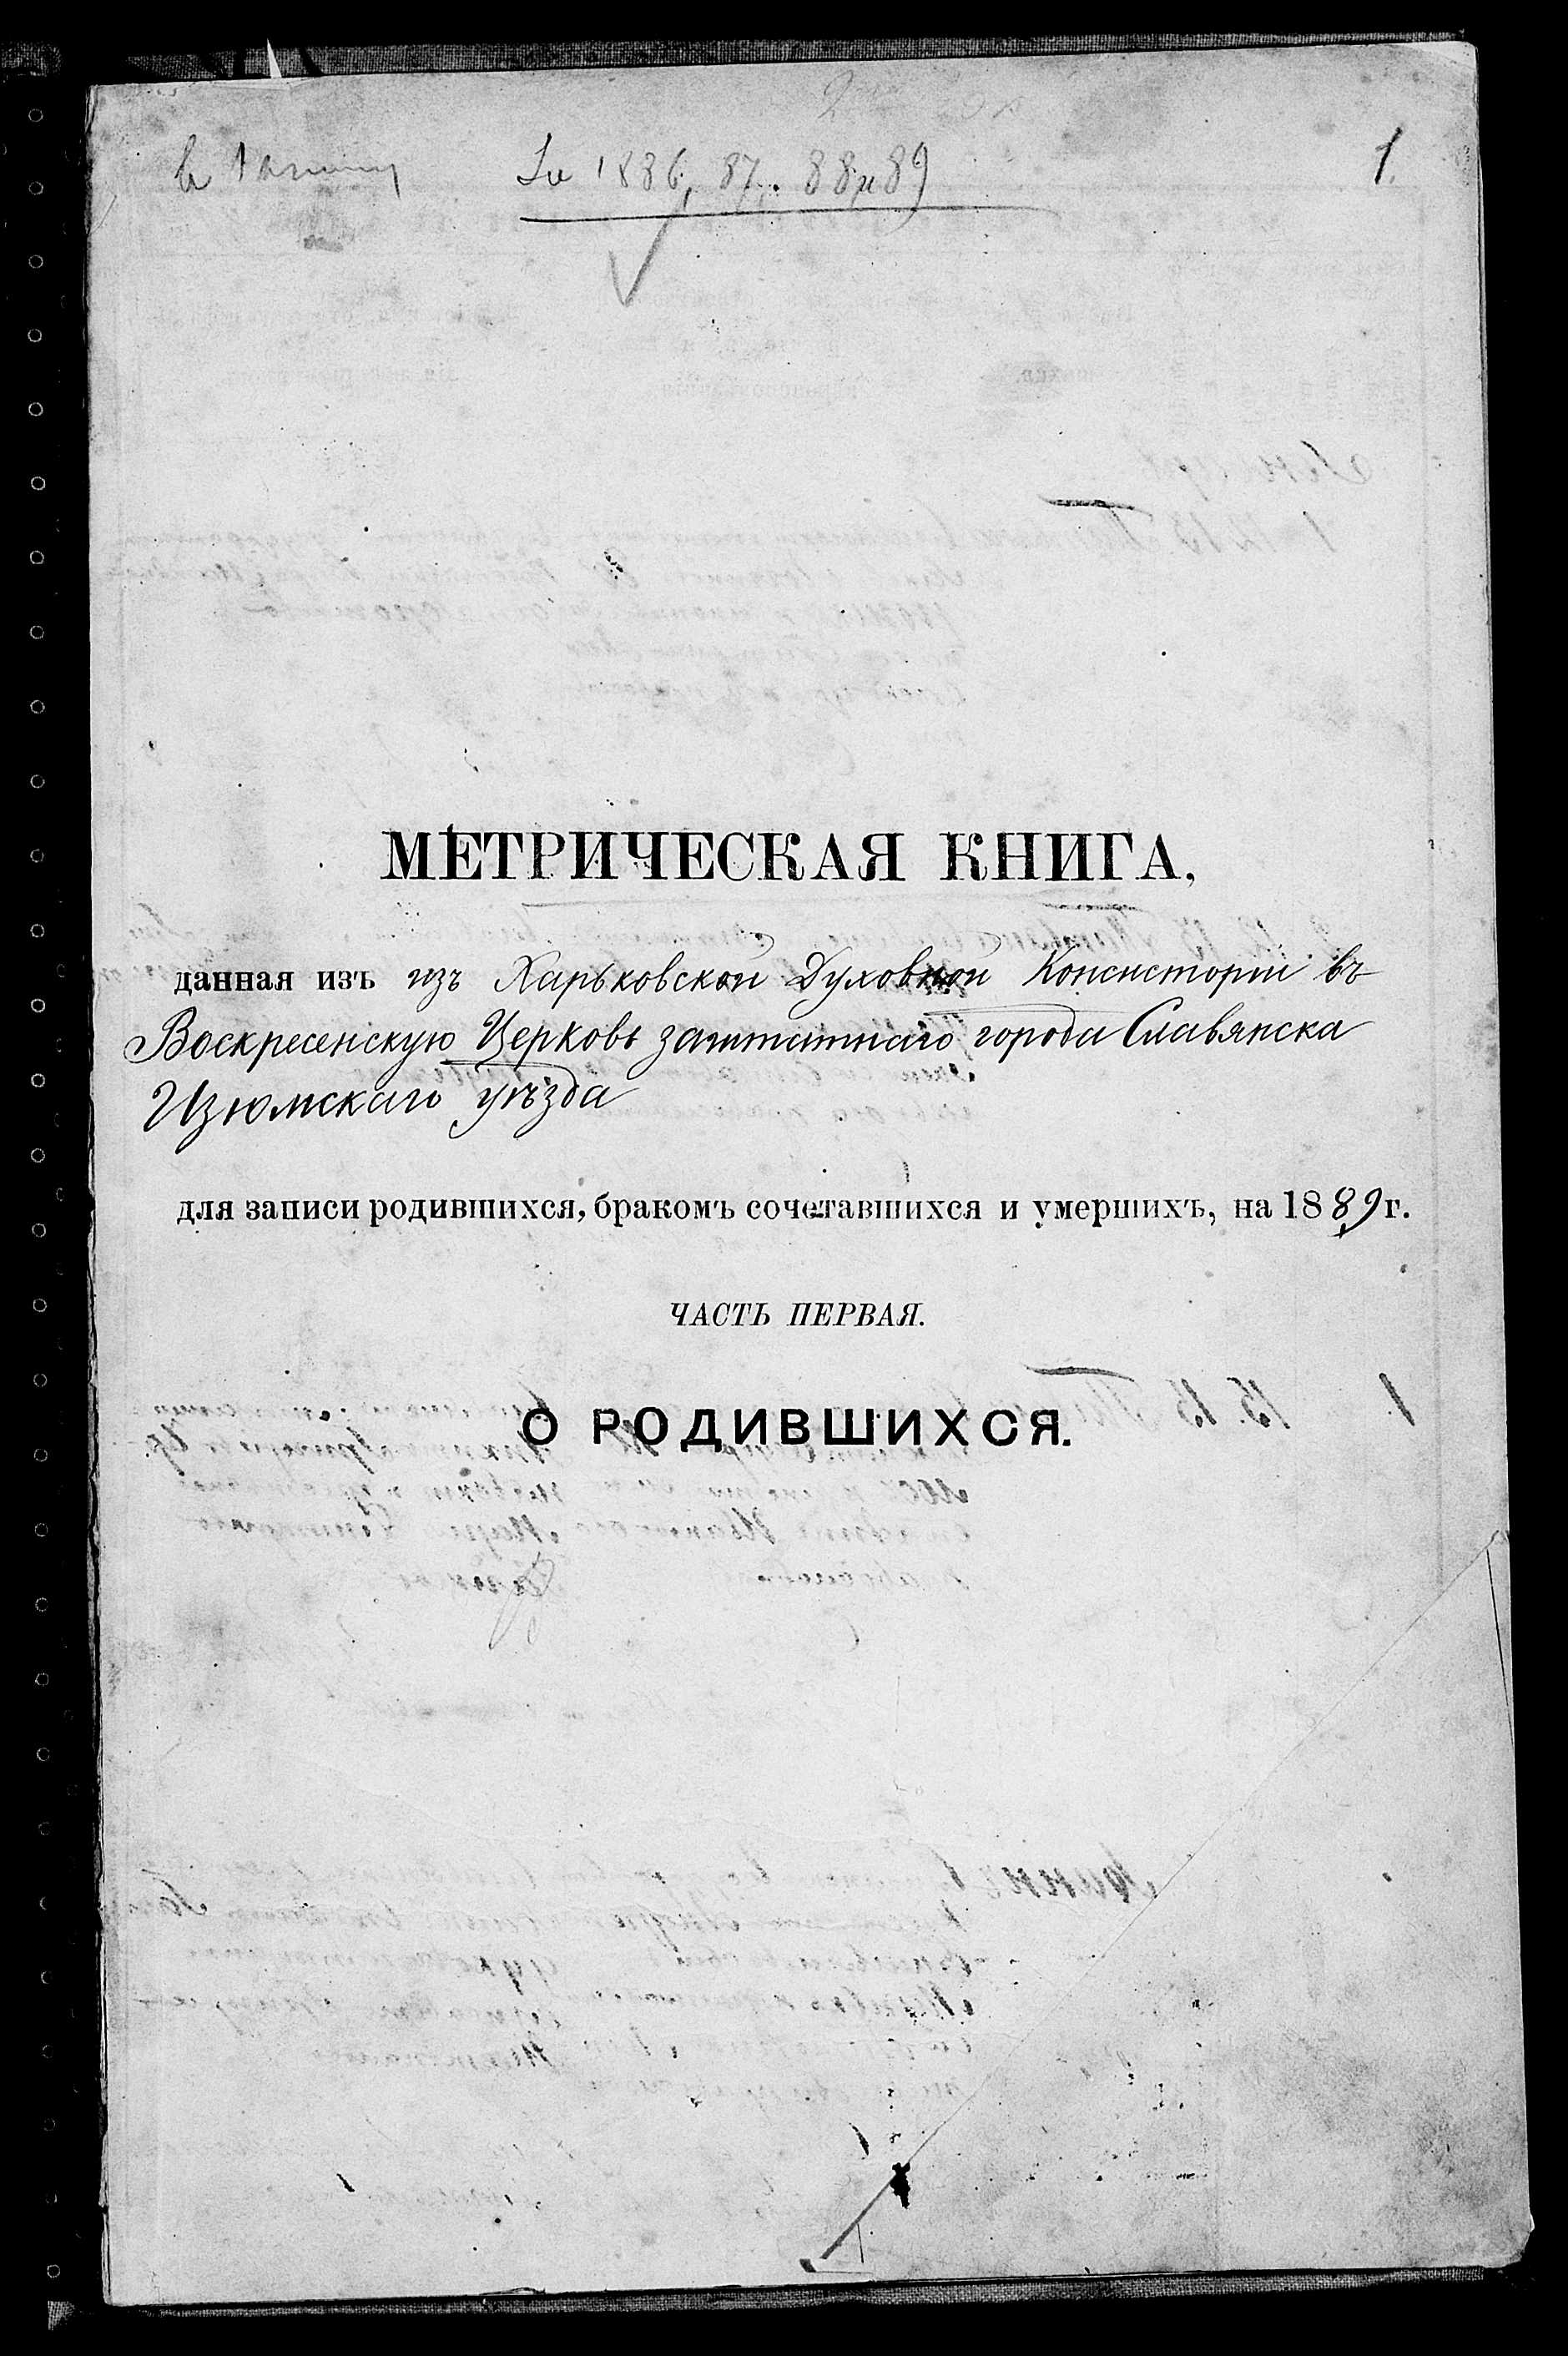 За 1886, 87, 88 и 89
1.
МЕТРИЧЕСКАЯ КНИГА,
данная изъ изъ Харьковской Духовной Консисторіи въ
Воскресенскую Церковь заштатнаго города Славянска
Изюмскаго уѣзда
для записи родившихся, бракомъ сочетавшихся и умершихъ, на 1889 г.
ЧАСТЬ ПЕРВАЯ.
О РОДИВШИХСЯ.